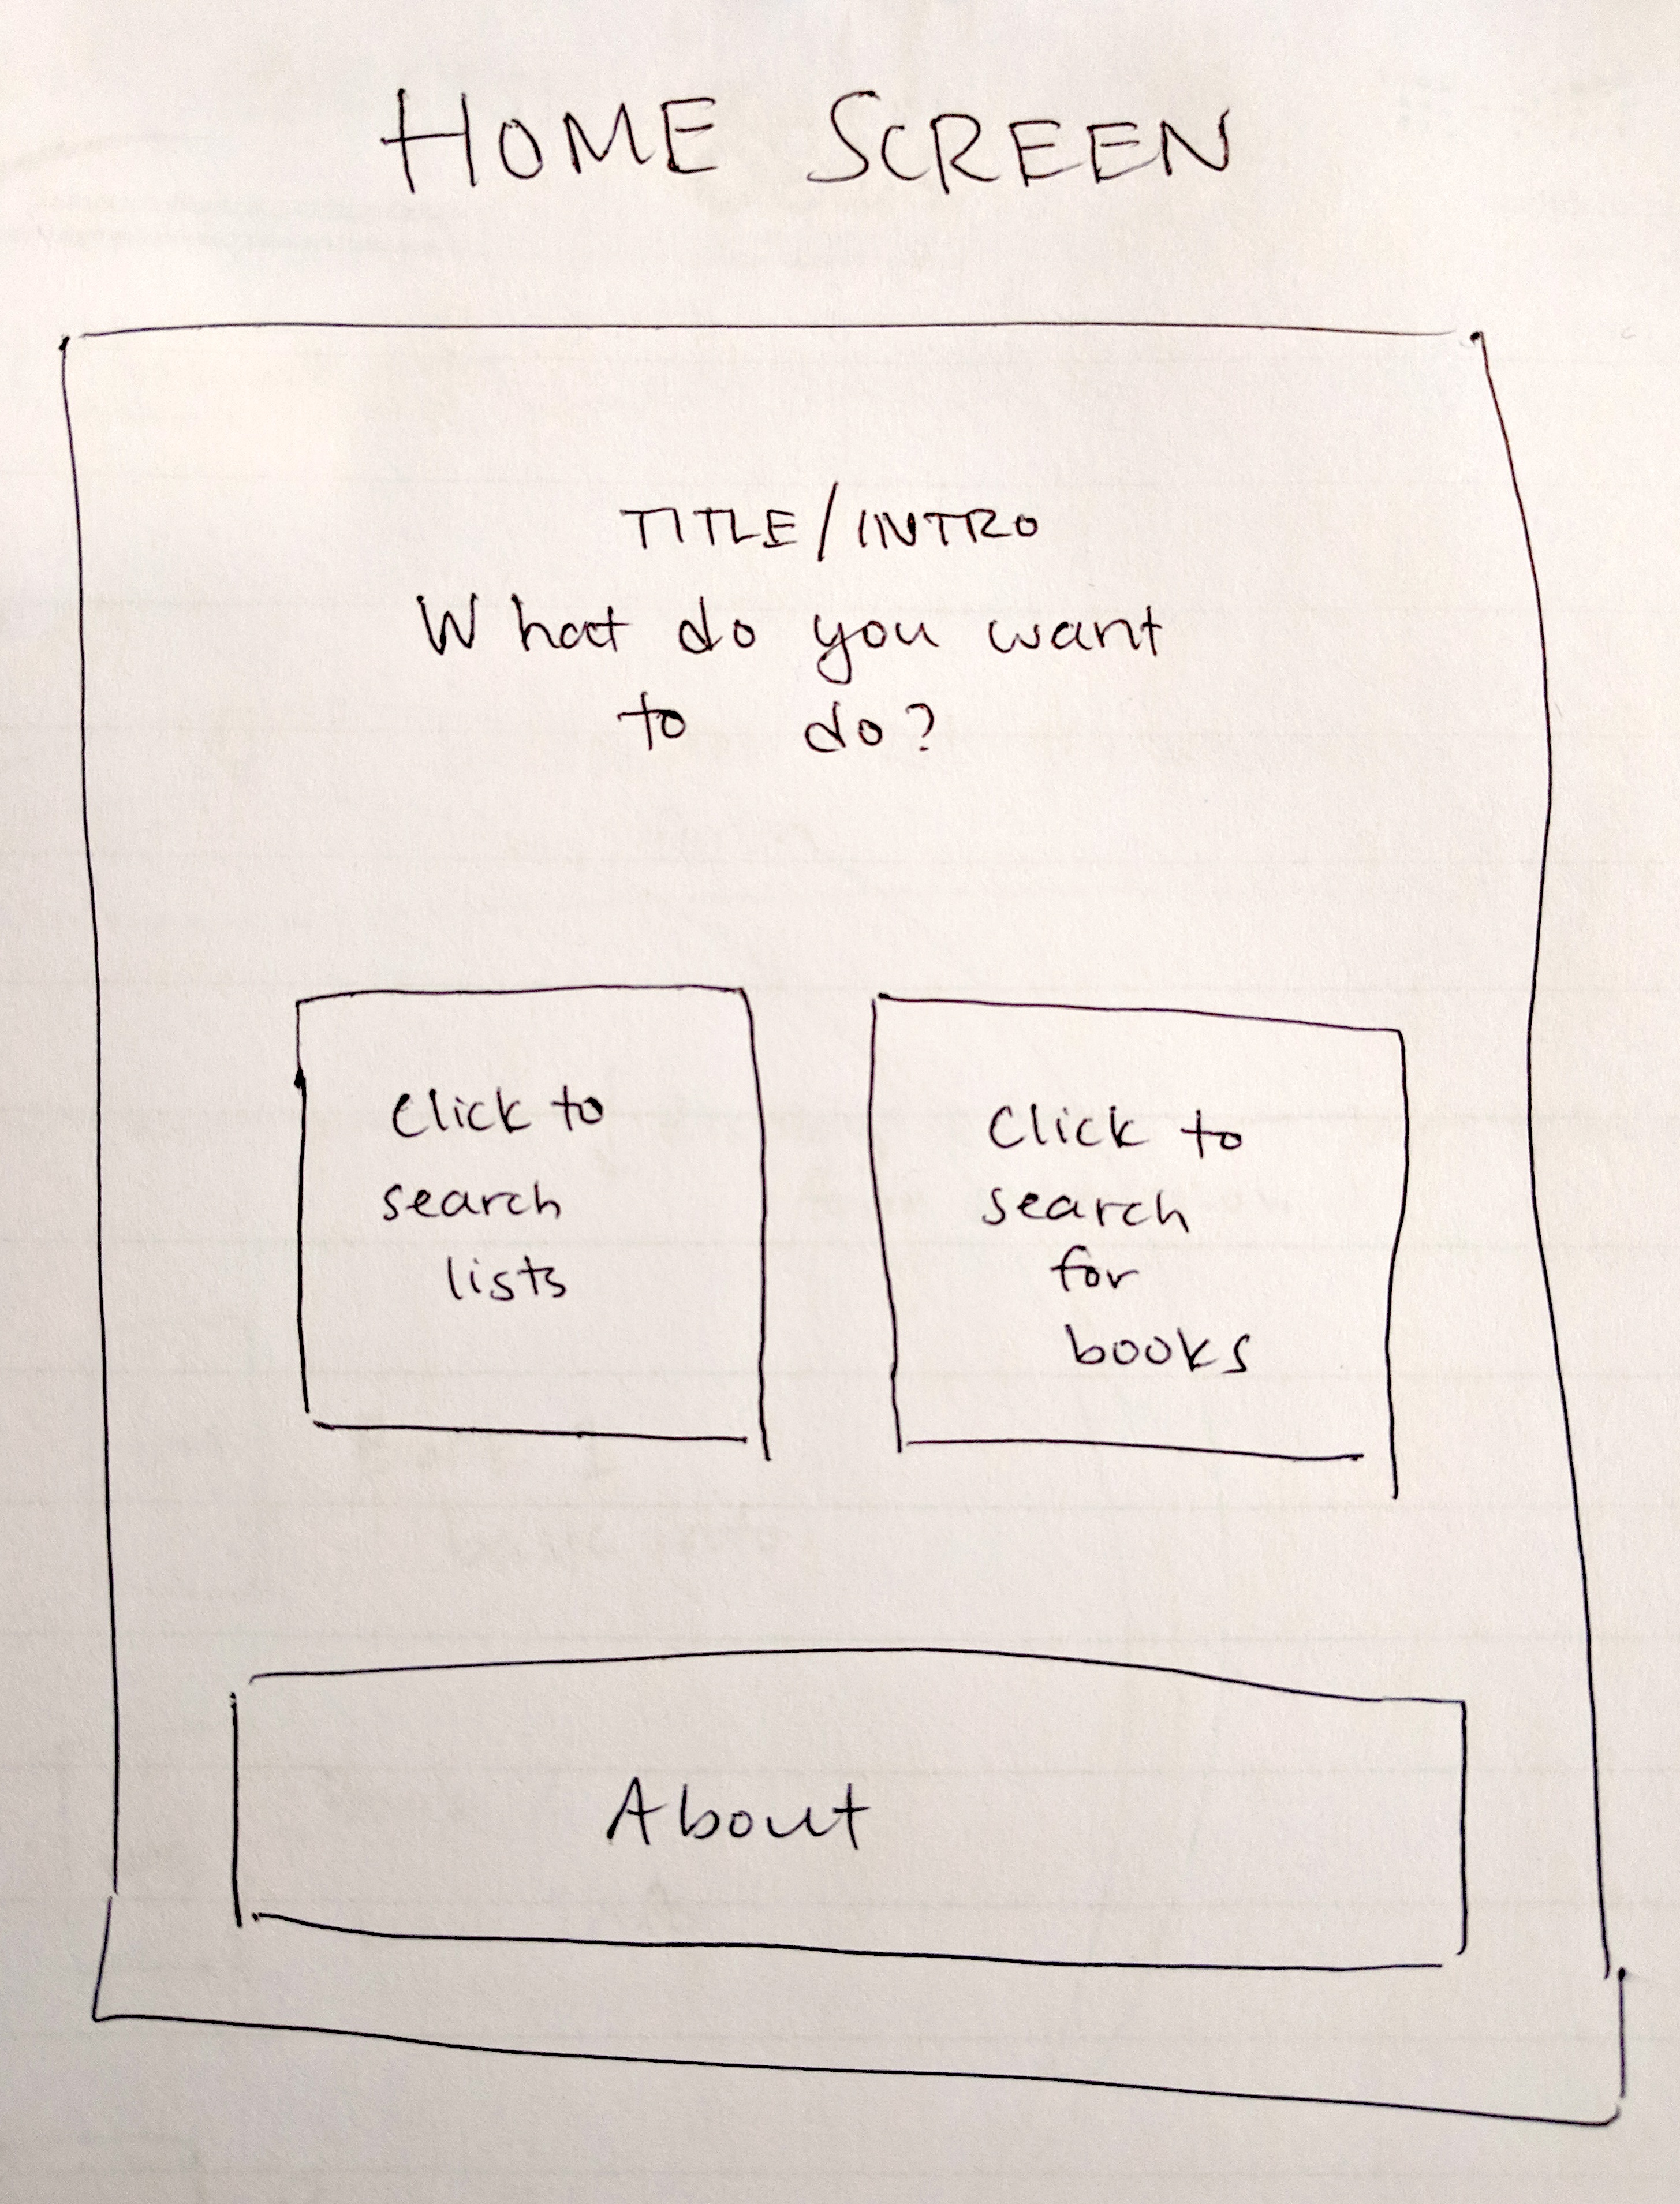 HOME SCREEN
TITLE/INTRO
What do you want
to do?
Click to
search
lists
Click to
search
for
books
About